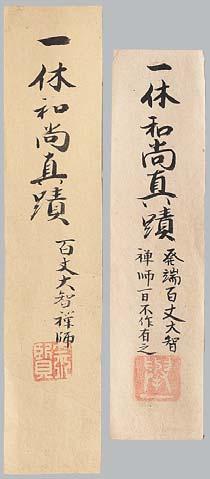 一休和尚真蹟
百丈大智禅師
一休和尚真蹟
発端百丈大智
禅師一日不作有之